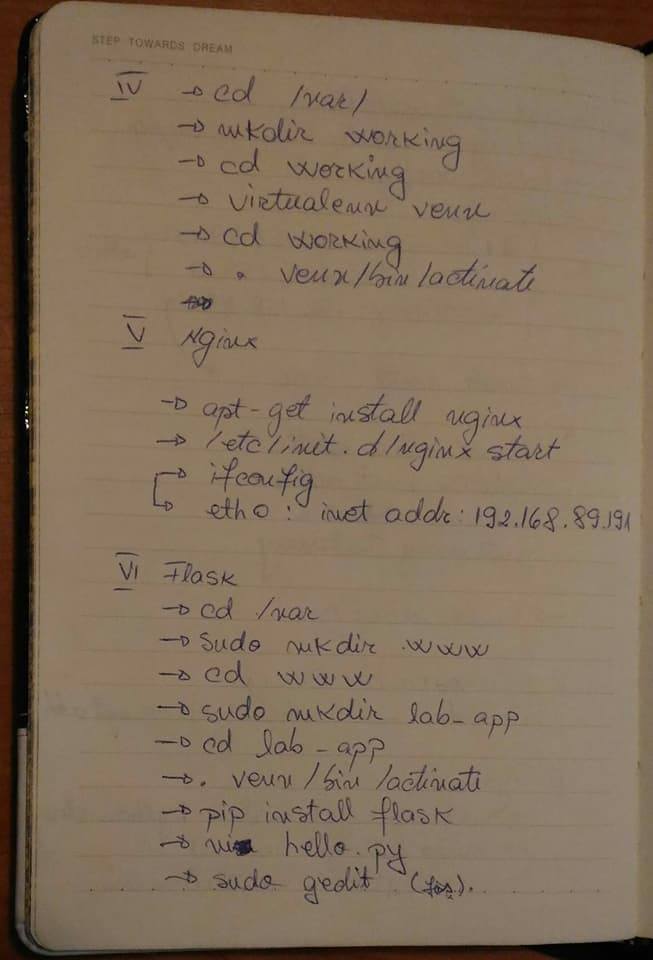 STEP TOWARDS DREAM
IV → cd /var/
→ mkdir working
→ cd working
→ virtualenv venv
→ cd working
→ . venv/bin/activate
V Nginx
→ apt-get install nginx
→ /etc/init.d/nginx start
→ ifconfig
→ eth0: inet addr: 192.168.89.191
VI Flask
→ cd /var
→ sudo mkdir www
→ cd www
→ sudo mkdir lab-app
→ cd lab-app
→ . venv/bin/activate
→ pip install flask
→ hello.py
→ sudo gedit